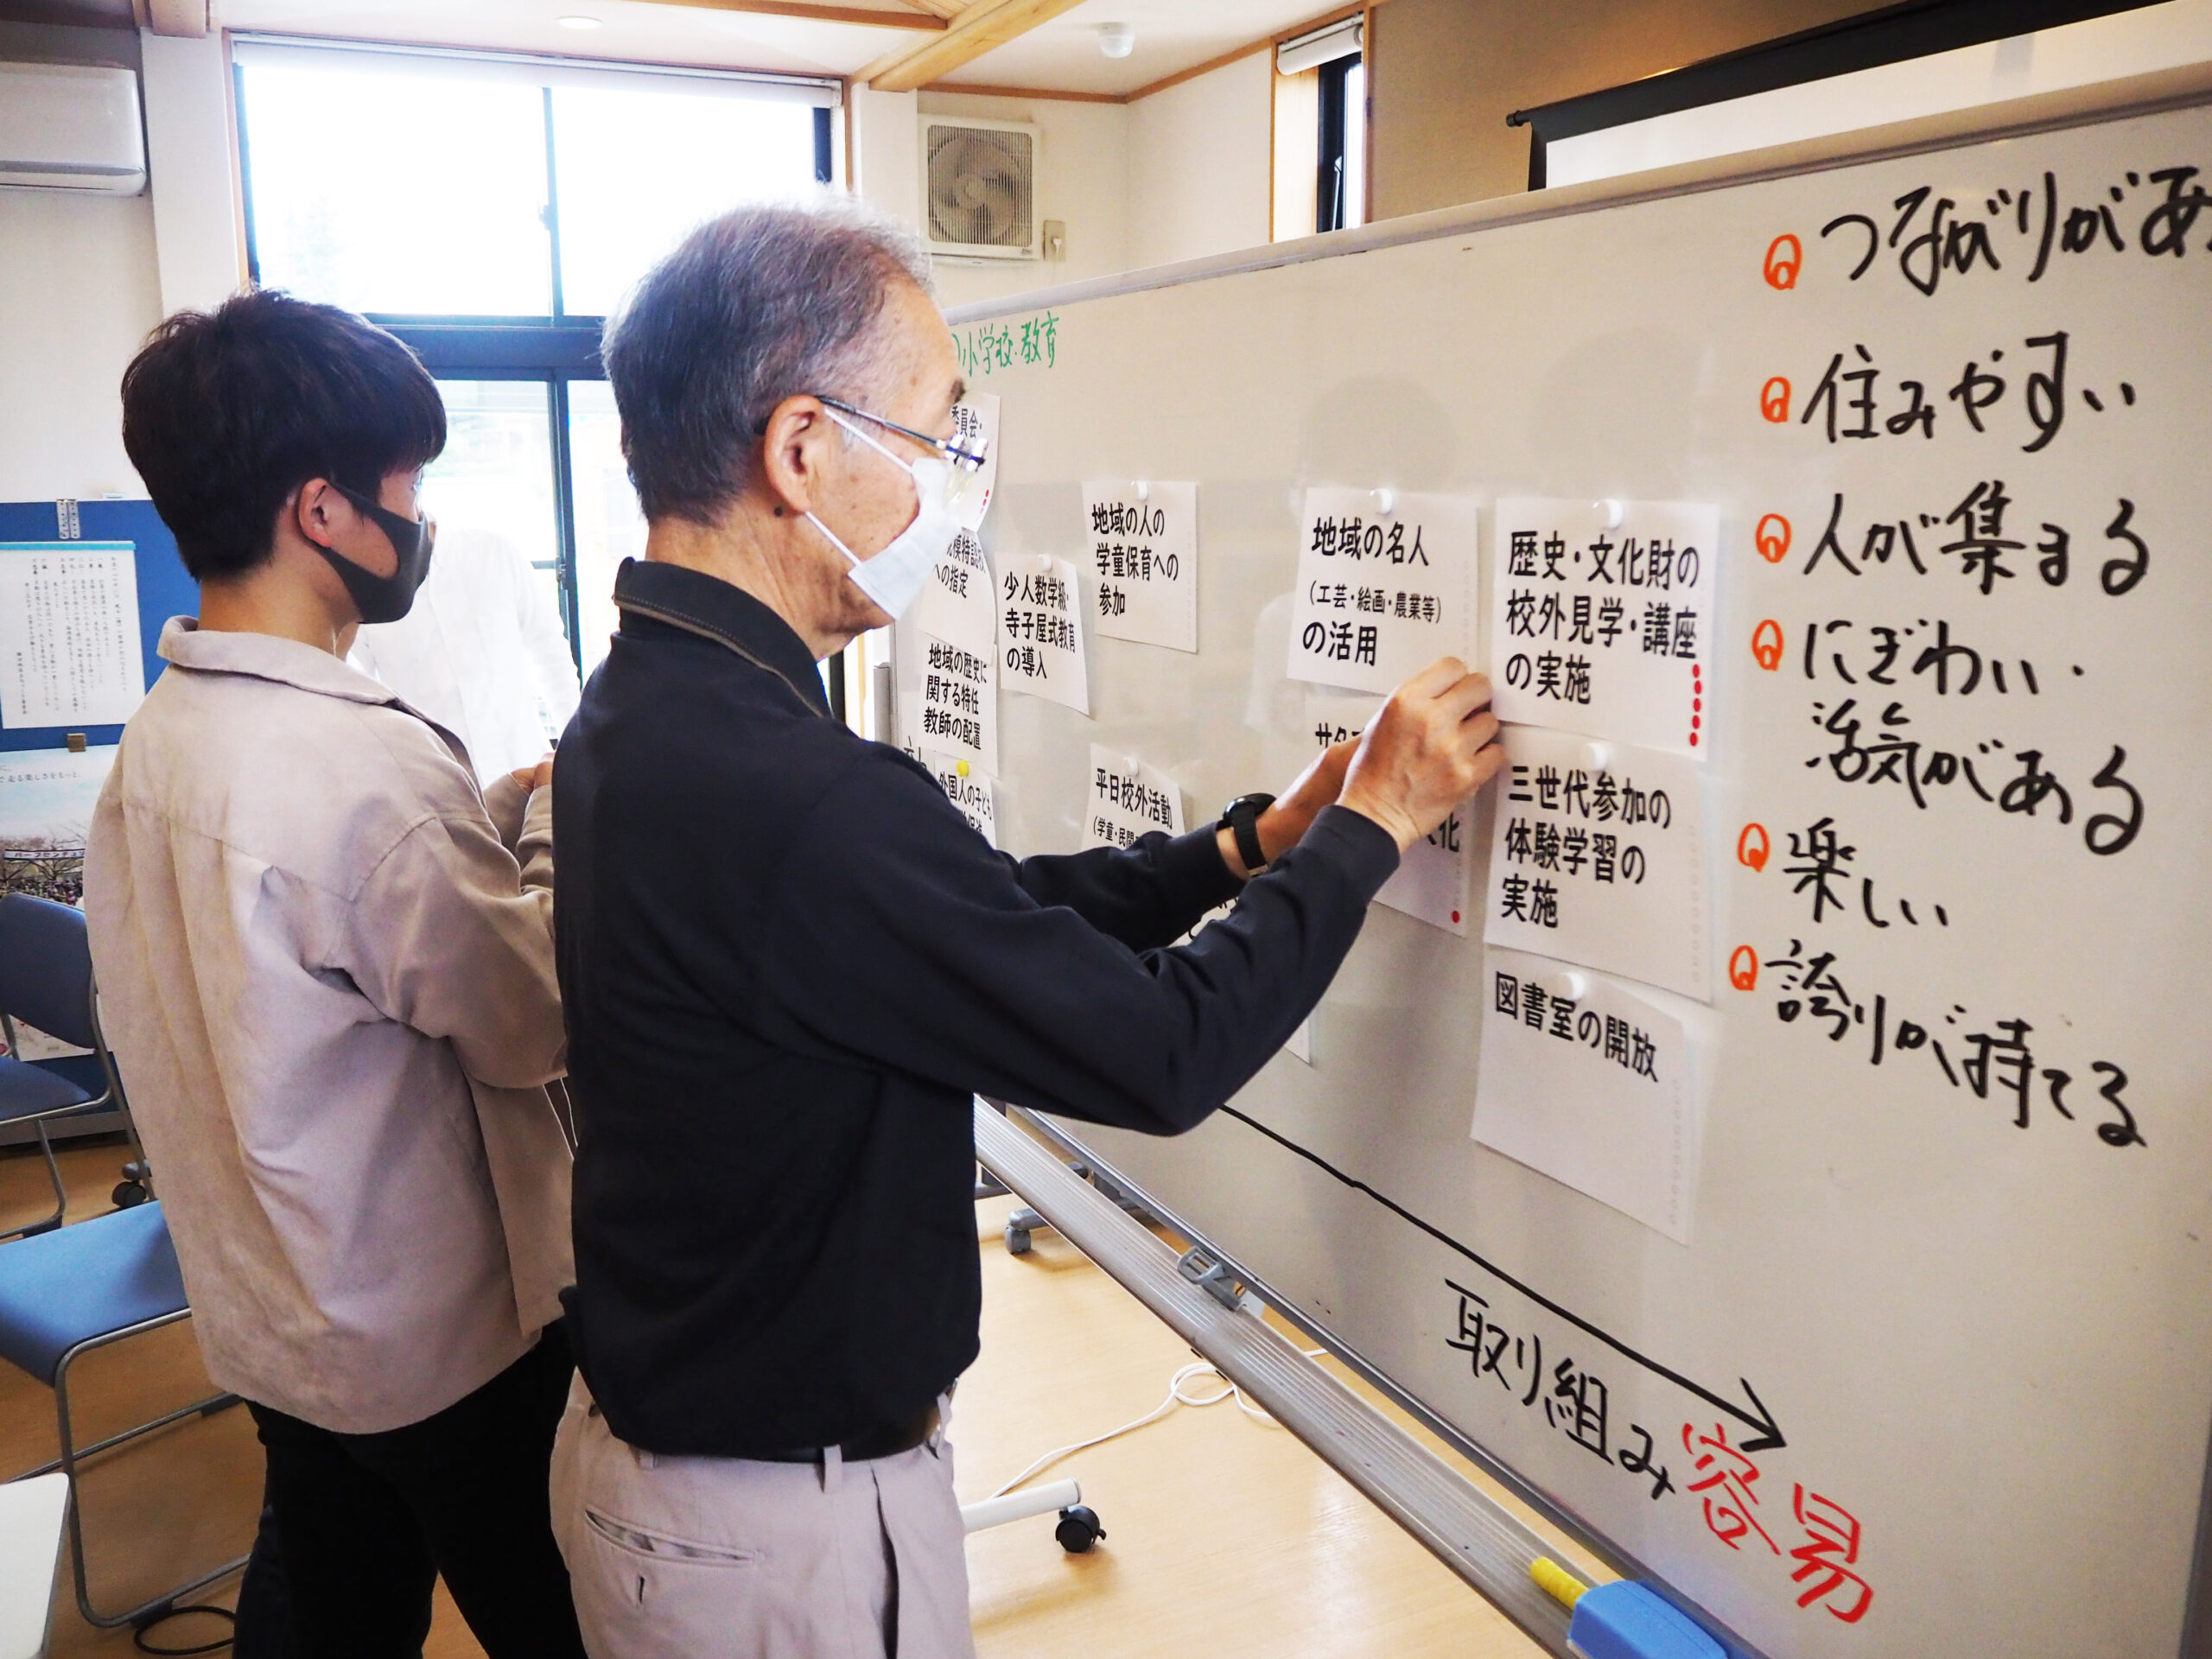 小学校・教育
委員会・
への指定
少人数学級・
寺子屋式教育
の導入
地域の歴史に
関する特任
教師の配置
外国人の子ども
地域の人の
学童保育への
参加
平日校外活動
地域の名人
（工芸・絵画・農業等）
の活用
歴史・文化財の
校外見学・講座
の実施
三世代参加の
体験学習の
実施
図書室の開放
つながりがあ
住みやすい
人が集まる
にぎわい・
活気がある
楽しい
誇りが持てる
取り組み容易